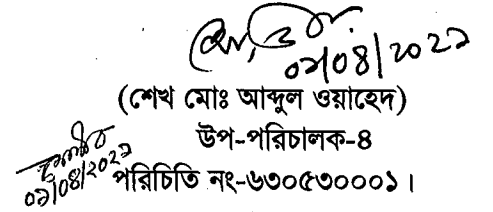 ০১/০৪/২০২১
(শেখ মোঃ আব্দুল ওয়াহেদ)
উপ-পরিচালক-৪
০১/০৪/২০২১
পরিচিতি নং-৬৩০৫৩০০০১।